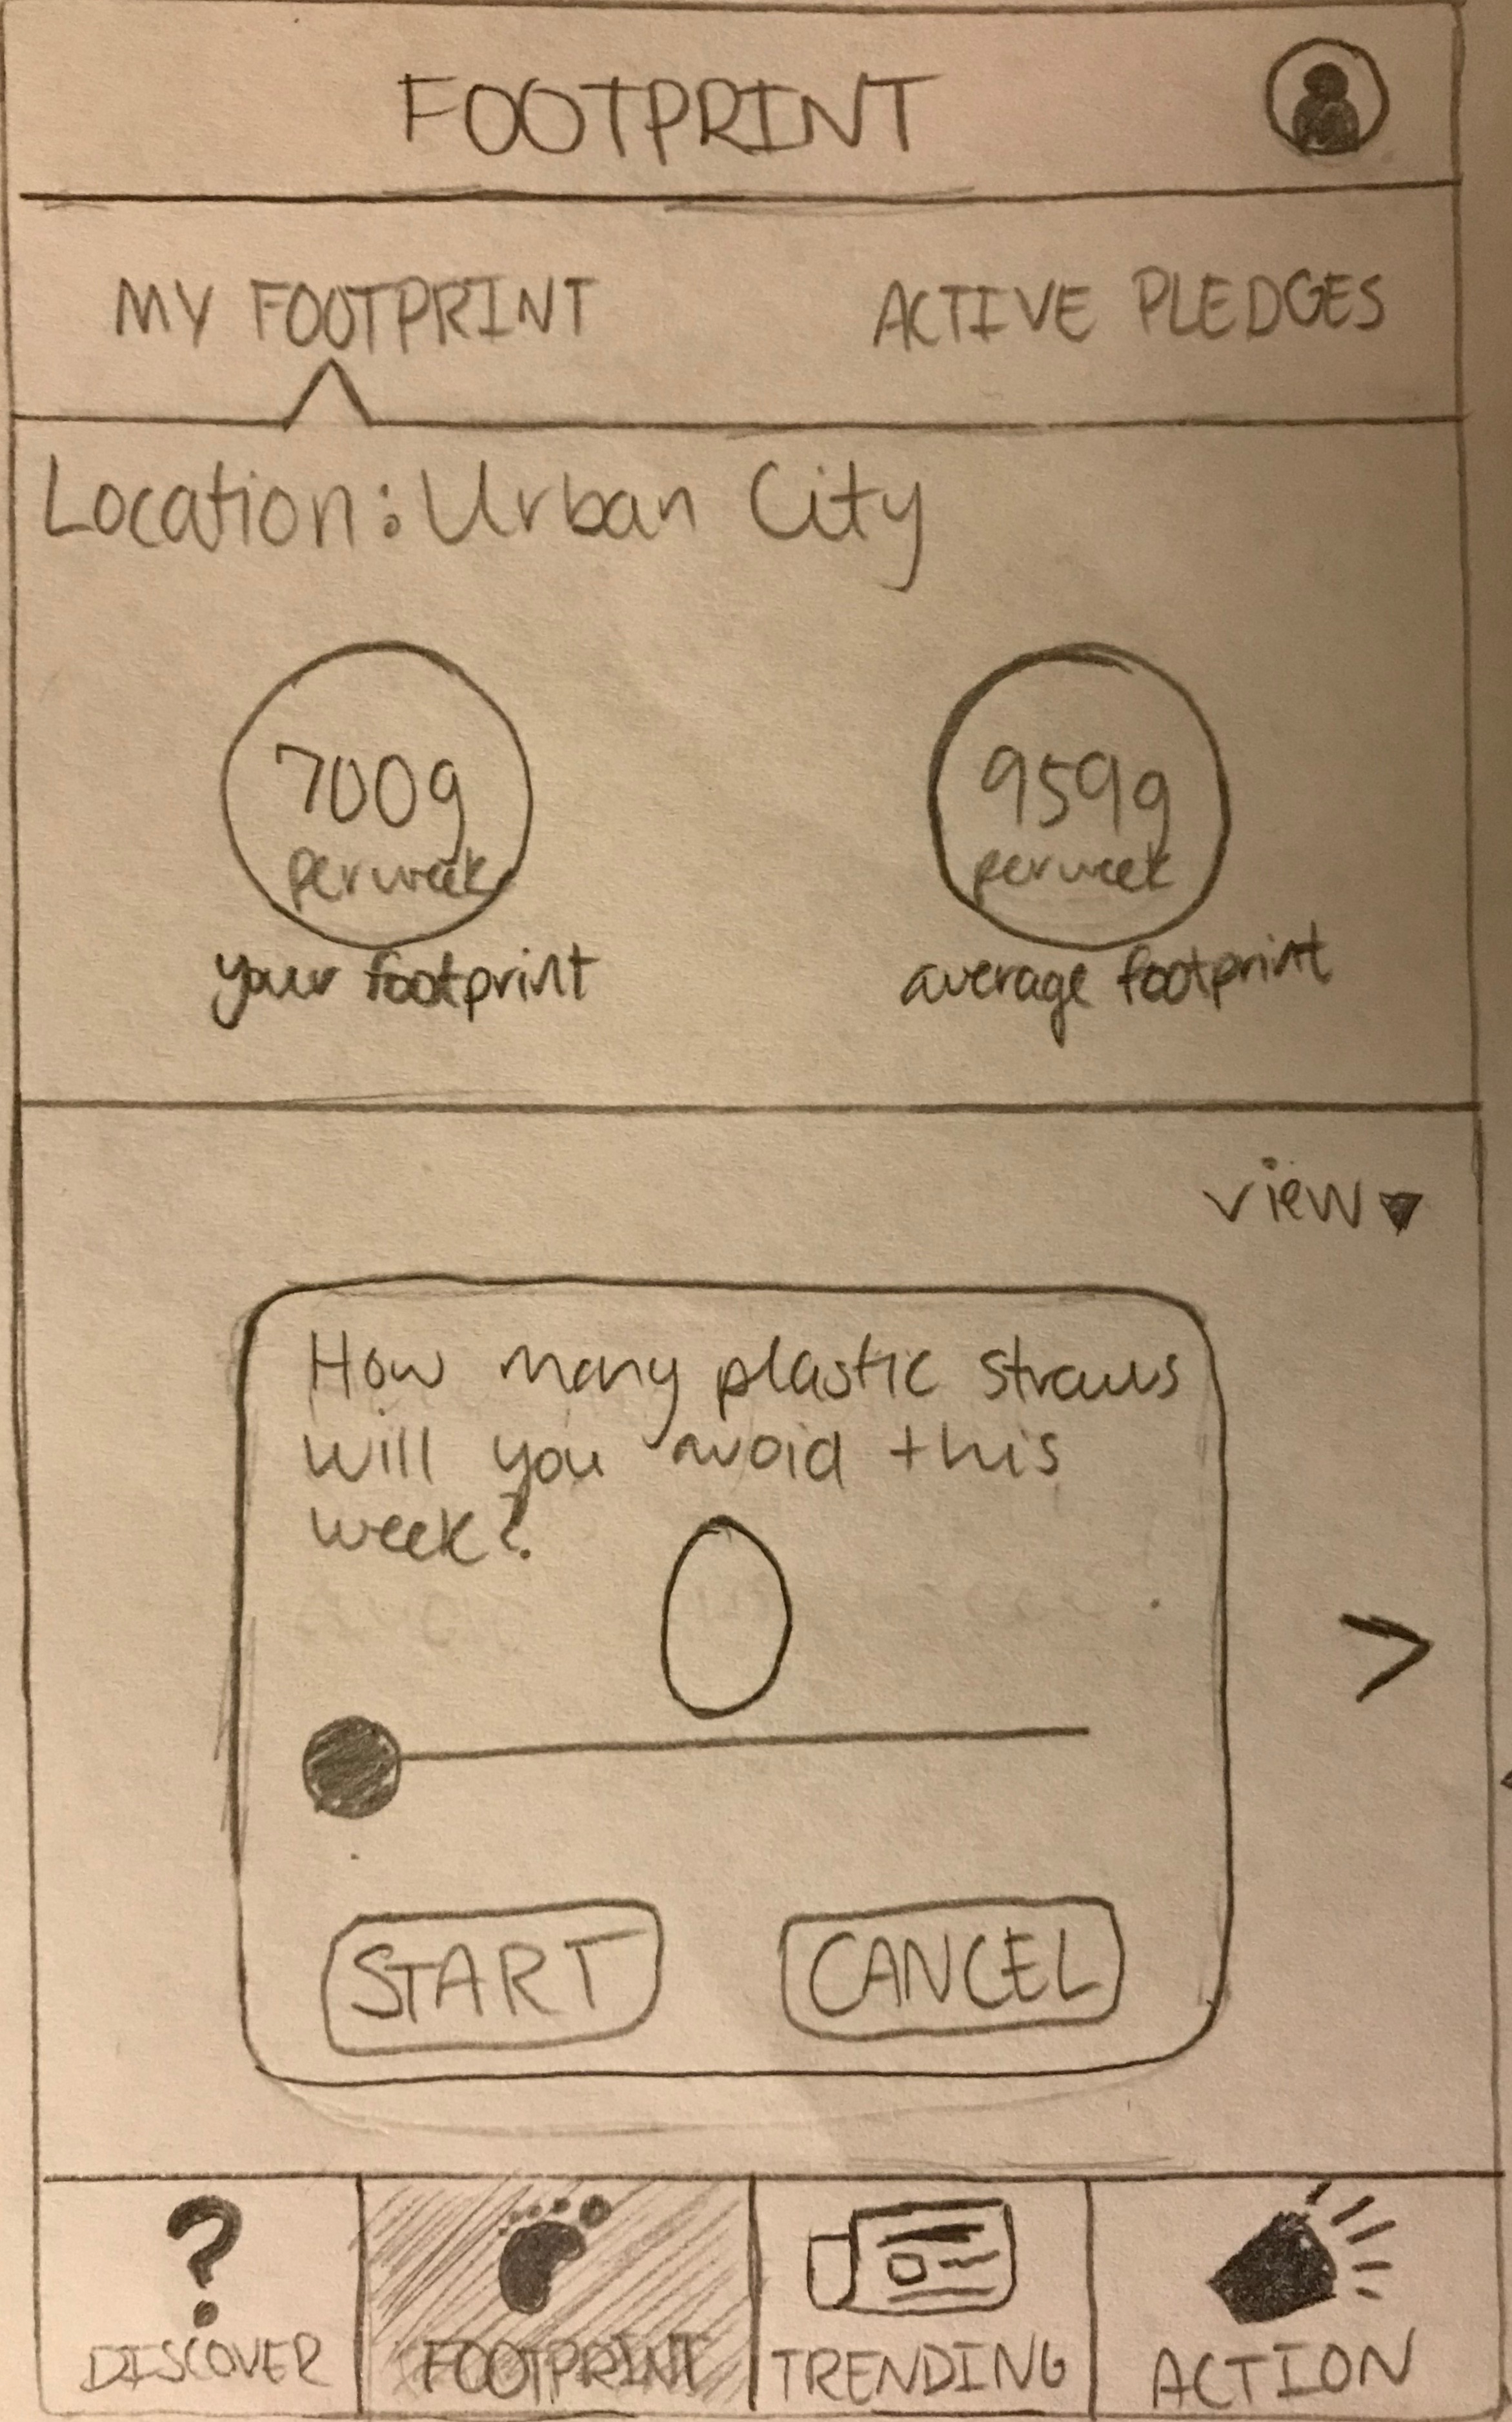 FOOTPRINT
MY FOOTPRINT ACTIVE PLEDGES
Location: Urban City
700g 959g
per week per week
your footprint average footprint
view
How many plastic straws
will you avoid this
week?
0
START CANCEL
?
DISCOVER FOOTPRINT TRENDING ACTION